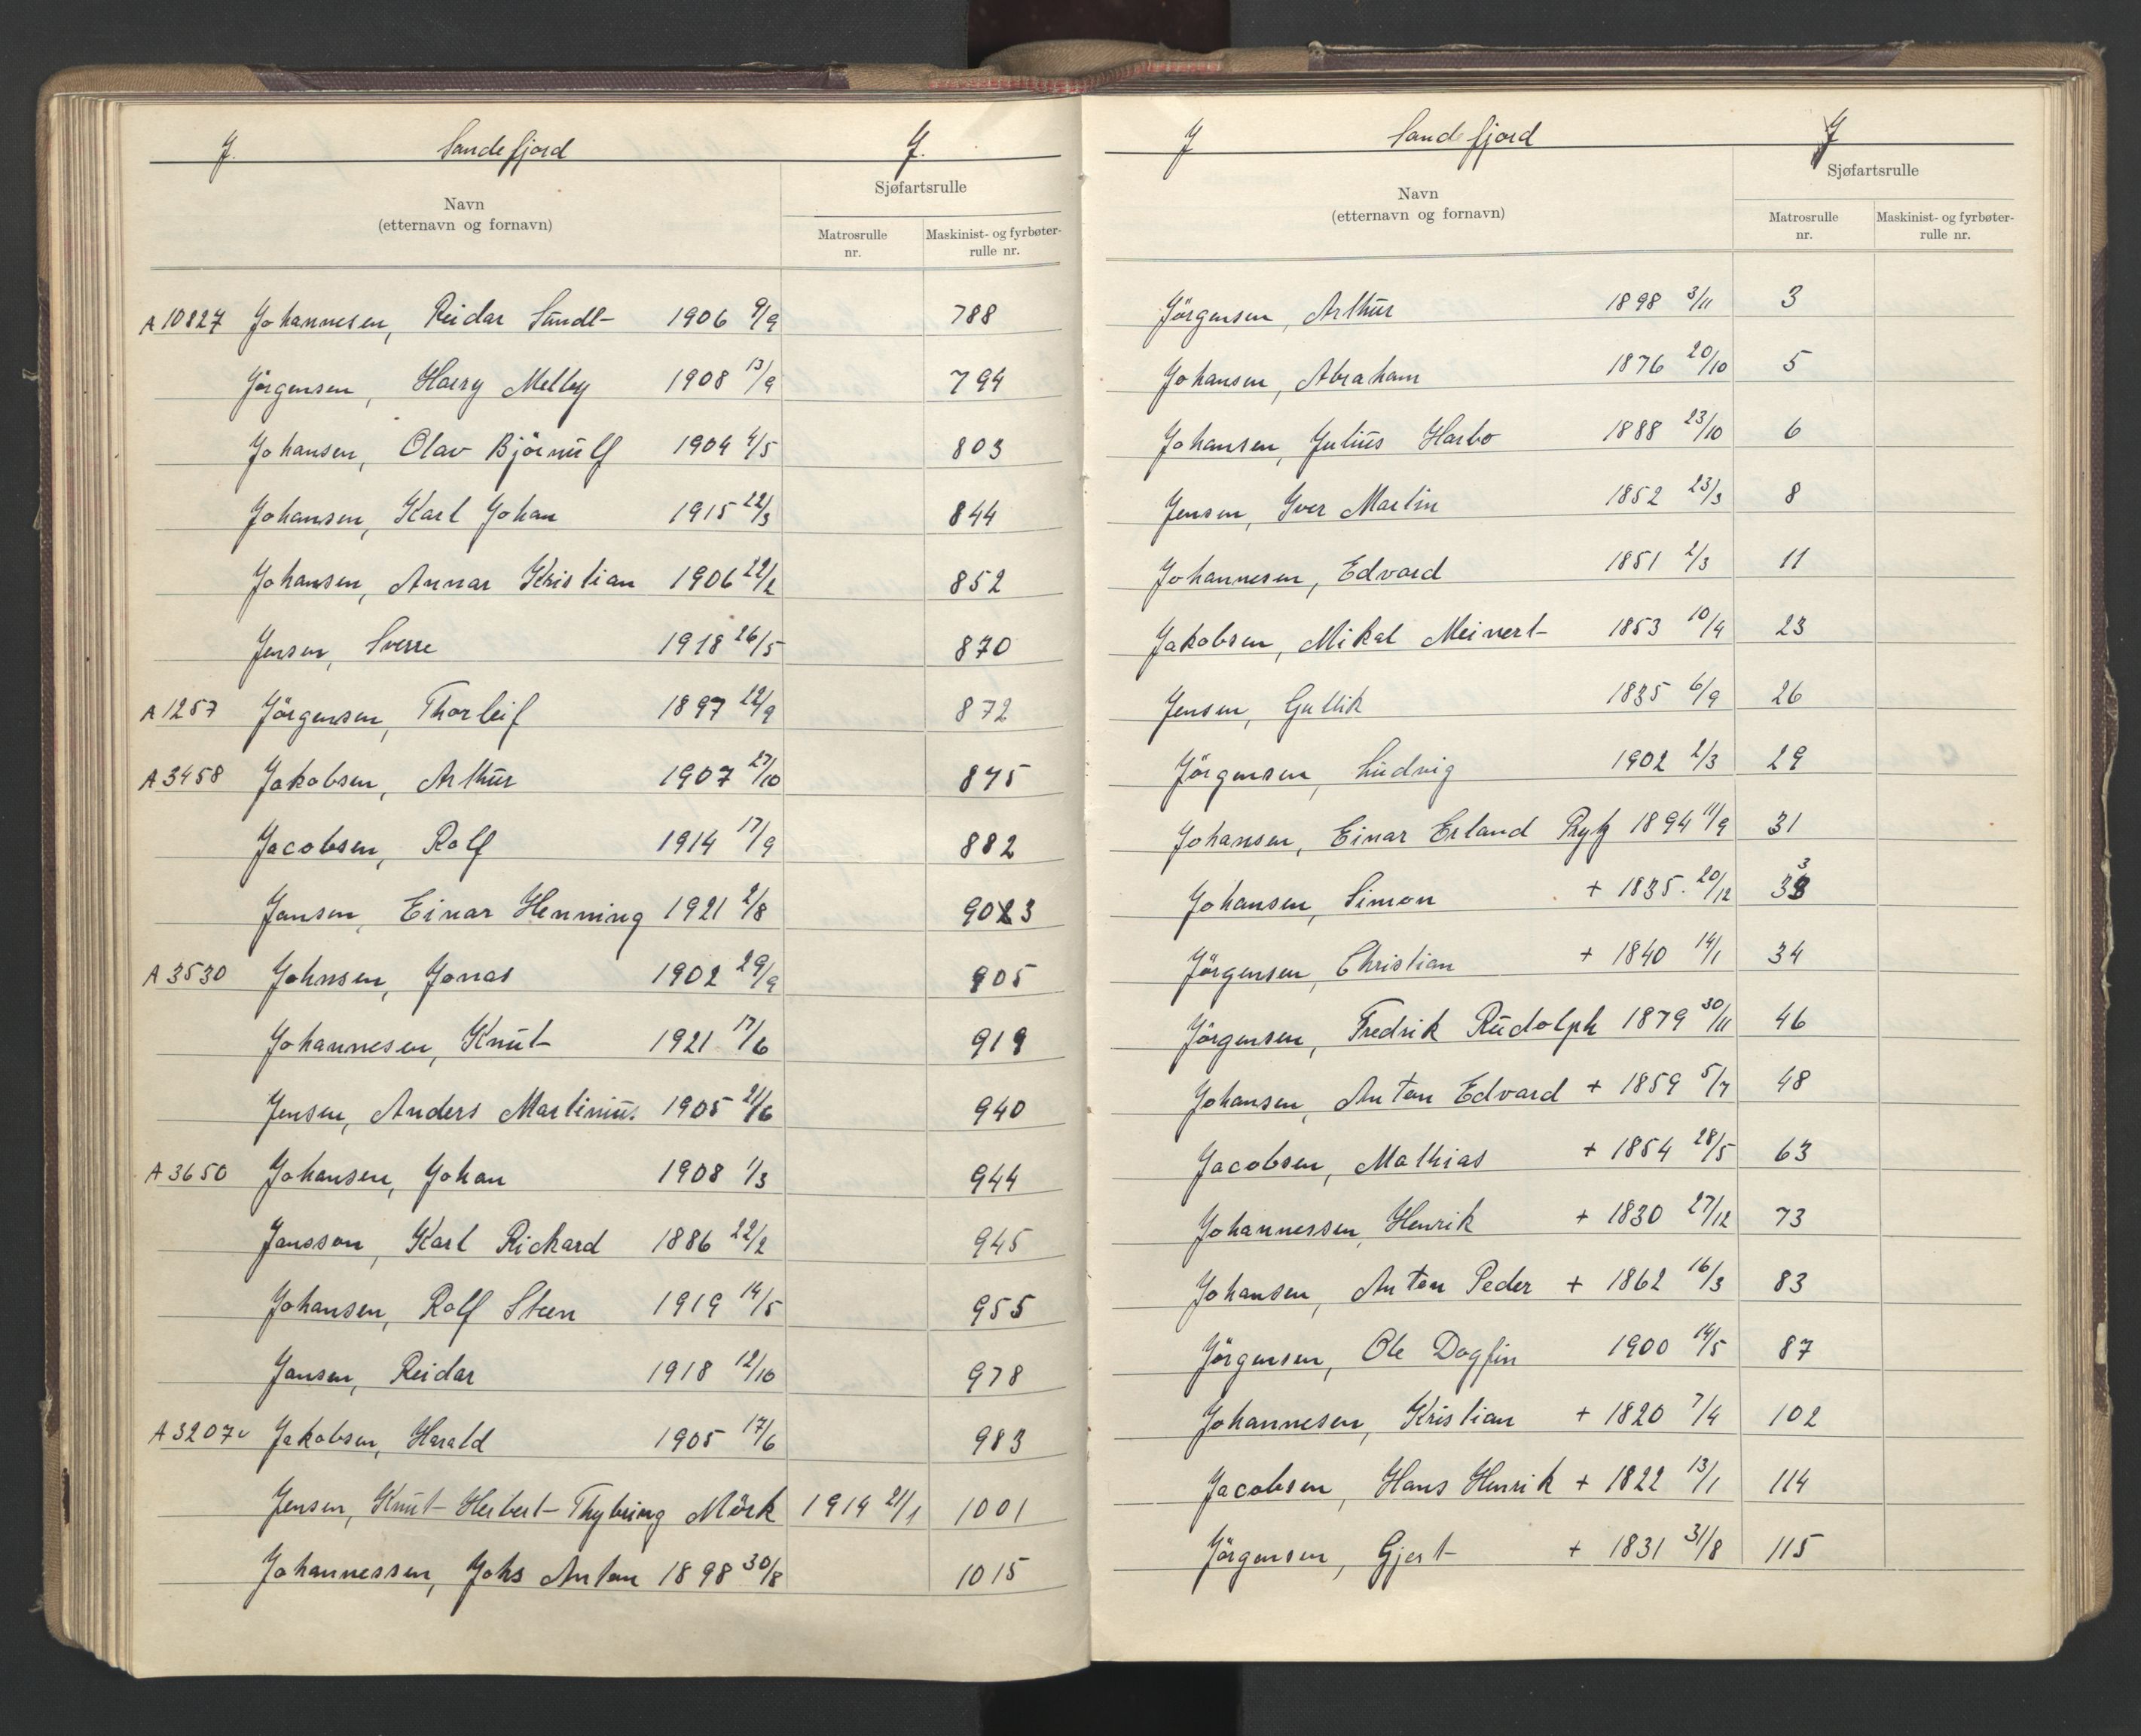 J. Sandefjord J.
Navn
(etternavn og fornavn)
Sjøfartsrulle
Matrosrulle nr.
Maskinist- og fyrbøter-rulle nr.
A 10827 Johannesen, Reidar Sundt 1906 9/9 788
Jörgensen, Harry Melby 1908 13/9 794
Johansen, Olav Björnulf 1904 4/5 803
Johansen, Karl Johan 1915 22/3 844
Johansen, Annar Kristian 1906 22/2 852
Jensen, Sverre 1918 26/5 870
A 1257 Jörgensen, Thorleif 1897 22/9 872
A 3458 Jakobsen, Arthur 1907 27/10 875
Jacobsen, Rolf 1914 17/9 882
Jansen, Einar Henning 1921 2/8 903
A 3530 Johnsen, Jonas 1902 29/9 905
Johannesen, Knut 1921 17/6 919
Jensen, Anders Martinius 1905 21/6 940
A 3650 Johansen, Johan 1908 1/3 944
Jansson, Karl Rickard 1886 22/2 945
Johansen, Rolf Steen 1919 14/5 955
Jansen, Reidar 1918 12/10 978
A 3207 Jakobsen, Harald 1905 17/6 983
Jensen, Knut Herbert Thybring Mörk 1914 21/1 1001
Johannessen, Johs Anton 1898 30/8 1015
J Sandefjord J
Navn
(etternavn og fornavn)
Sjøfartsrulle
Matrosrulle nr.
Maskinist- og fyrbøter-rulle nr.
Jörgensen, Arthur 1898 3/11 3
Johansen, Abraham 1876 20/10 5
Johansen, Julius Harbo 1888 23/10 6
Jensen, Iver Martin 1852 23/3 8
Johannesen, Edvard 1851 2/3 11
Jakobsen, Mikal Meinert 1853 10/4 23
Jensen, Gullik 1835 6/9 26
Jörgensen, Ludvig 1902 2/3 29
Johansen, Einar Erland 1894 11/9 31
Johansen, Simon + 1835. 20/12 33
Jörgensen, Christian + 1840 14/1 34
Jörgensen, Fredrik Rudolph 1879 30/11 46
Johansen, Anton Edvard + 1859 5/7 48
Jacobsen, Mathias + 1854 28/5 63
Johannessen, Henrik + 1830 27/12 73
Johansen, Anton Peder + 1862 16/3 83
Jörgensen, Ole Dagfin 1900 14/5 87
Johannesen, Kristian + 1820 7/4 102
Jacobsen, Hans Henrik + 1822 13/1 114
Jörgensen, Gjert + 1831 31/8 115